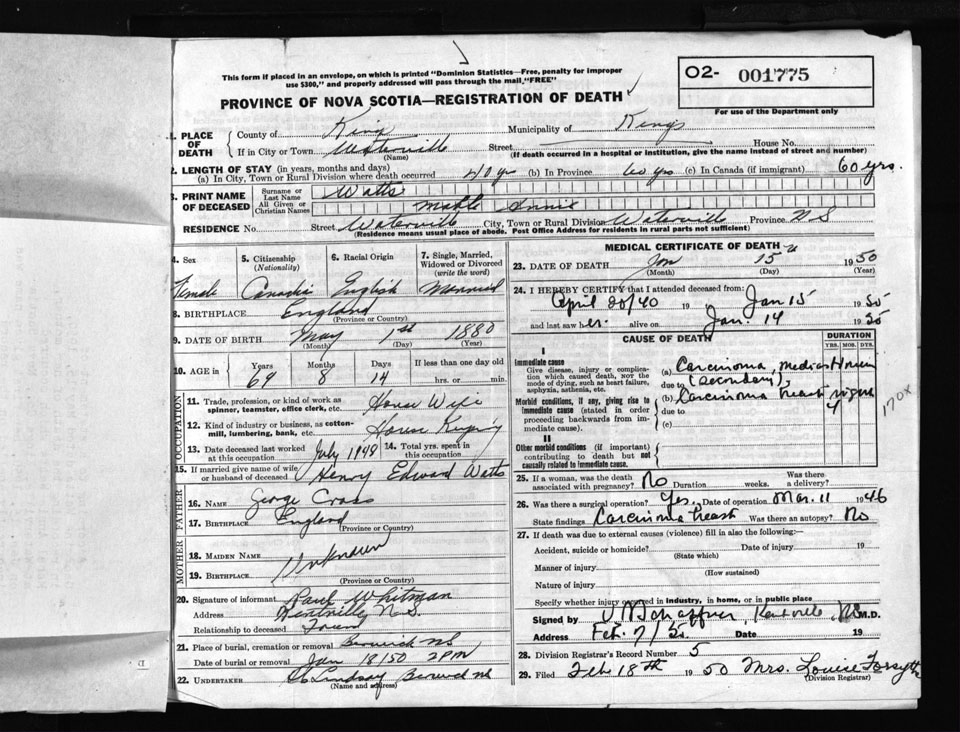 This form if placed in an envelope, on which is printed "Dominion Statistics—Free, penalty for improper
use $300," and properly addressed will pass through the mail, "FREE"
PROVINCE OF NOVA SCOTIA—REGISTRATION OF DEATH
O2- 001775
For use of the Department only
1. PLACE OF DEATH County of Kings Municipality of Kings
If in City or Town Waterville (Name) Street House No.
(If death occurred in a hospital or institution, give the name instead of street and number)
2. LENGTH OF STAY (in years, months and days)
(a) In City, Town or Rural Division where death occurred 40 yrs (b) In Province 60 yrs (c) In Canada (if immigrant) 60 yrs.
3. PRINT NAME OF DECEASED Surname or Last Name Watts
All Given or Christian Names Annie
RESIDENCE No. Street Waterville City, Town or Rural Division Waterville Province N S
(Residence means usual place of abode. Post Office Address for residents in rural parts not sufficient)
4. Sex Female
5. Citizenship (Nationality) Canadian
6. Racial Origin English
7. Single, Married, Widowed or Divorced (write the word) Married
8. BIRTHPLACE England
(Province or Country)
9. DATE OF BIRTH May 1st 1880
(Month) (Day) (Year)
10. AGE in Years 69 Months 8 Days 14 If less than one day old hrs. or min.
OCCUPATION
11. Trade, profession, or kind of work as spinner, teamster, office clerk, etc. House Wife
12. Kind of industry or business, as cotton-mill, lumbering, bank, etc. House Keeping
13. Date deceased last worked at this occupation July 1948 14. Total yrs. spent in this occupation
15. If married give name of wife or husband of deceased Henry Edward Watts
FATHER
16. NAME George Cross
17. BIRTHPLACE England
(Province or Country)
MOTHER
18. MAIDEN NAME Unknown
19. BIRTHPLACE
(Province or Country)
20. Signature of informant Paul Whitman
Address N.S.
Relationship to deceased Friend
21. Place of burial, cremation or removal Berwick NS
Date of burial or removal Jan 18/50 2 PM
22. UNDERTAKER Lindsay Berwick NS
(Name and address)
MEDICAL CERTIFICATE OF DEATH
23. DATE OF DEATH Jan 15th 1950
(Month) (Day) (Year)
24. I HEREBY CERTIFY that I attended deceased from:
April 20/40 19 Jan 15 1950
and last saw her alive on Jan. 14 1950
CAUSE OF DEATH
DURATION
YRS. MOS. DYS.
I
Immediate cause
Give disease, injury or complication which caused death, not the mode of dying, such as heart failure, asphyxia, asthenia, etc.
(a) Carcinoma, mediastinum
due to (secondary),
Morbid conditions, if any, giving rise to immediate cause (stated in order proceeding backwards from immediate cause).
(b) Carcinoma breast right
due to
(c)
170X
II
Other morbid conditions (if important) contributing to death but not causally related to immediate cause.
25. If a woman, was the death associated with pregnancy? No Duration weeks. Was there a delivery?
26. Was there a surgical operation? Yes. Date of operation Mar. 11 1946
State findings Carcinoma breast Was there an autopsy? No
27. If death was due to external causes (violence) fill in also the following:—
Accident, suicide or homicide? Date of injury 19
(State which)
Manner of injury
(How sustained)
Nature of injury
Specify whether injury occurred in industry, in home, or in public place
Signed by Kentville NS M.D.
Address Feb. 7/50 Date 19
28. Division Registrar's Record Number 5
29. Filed Feb 18th 1950 Mrs. Louise Forsythe
(Division Registrar)